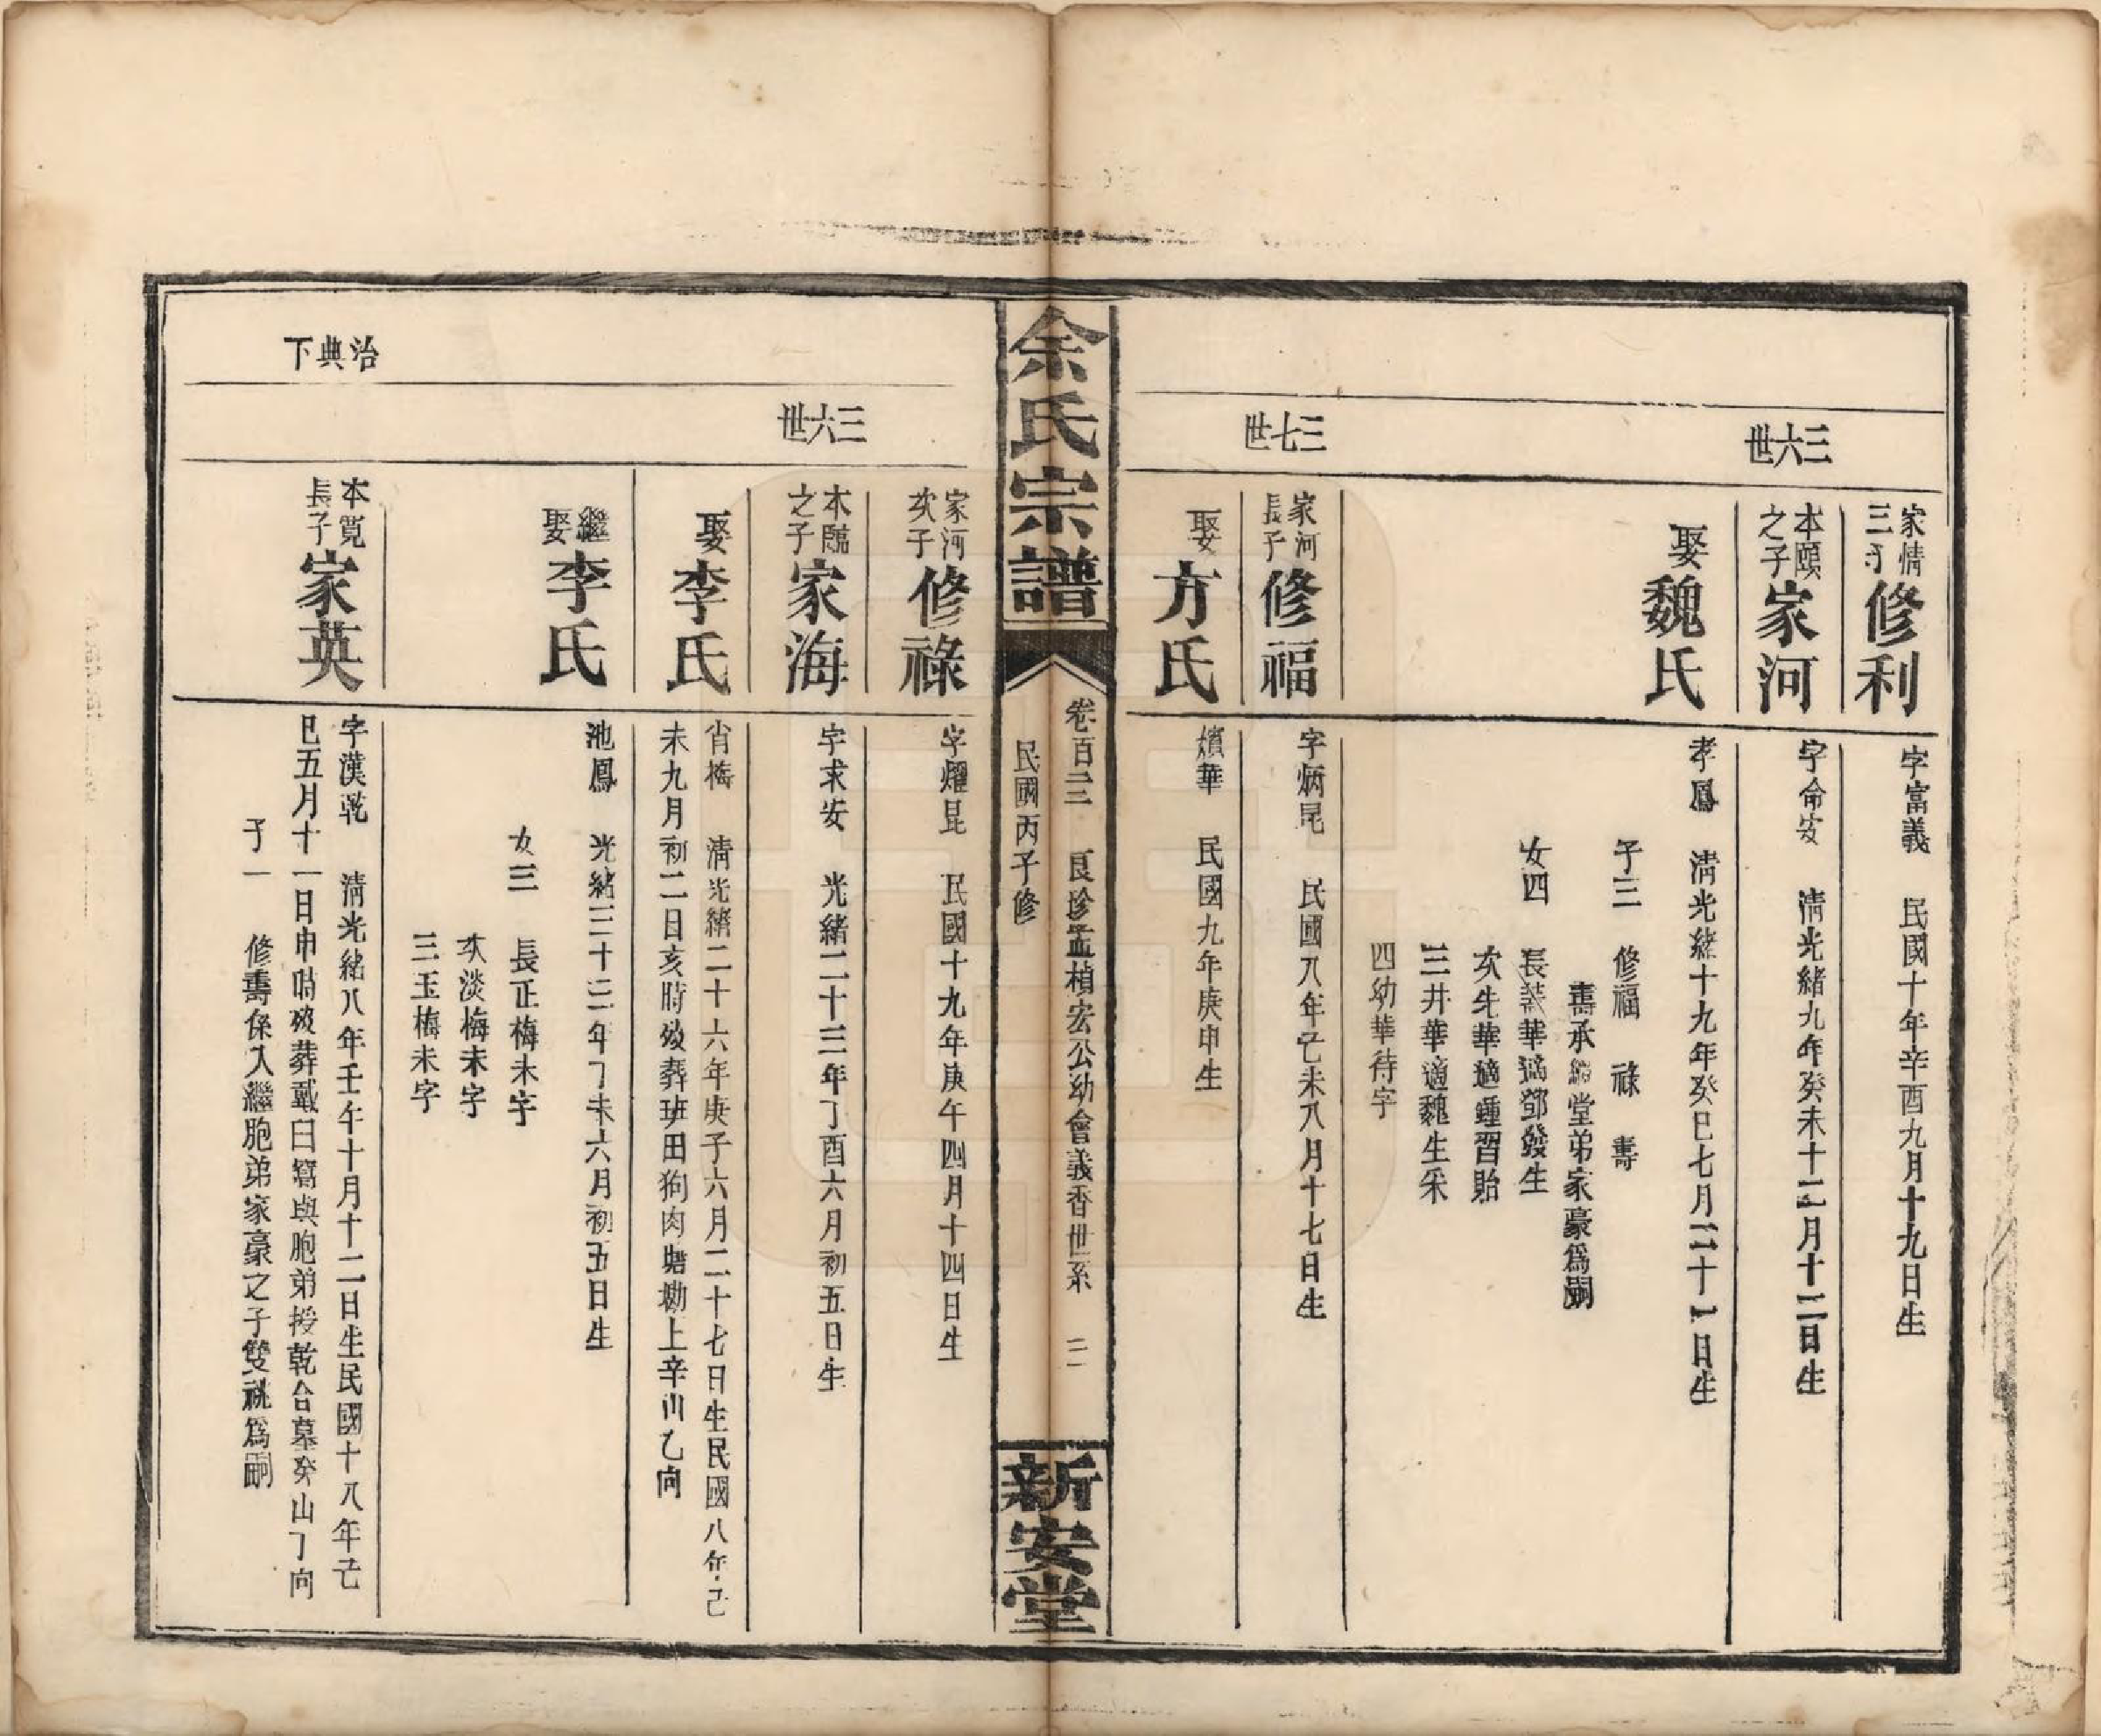 三六世
家情三子
修利
字富義　民國十年辛酉九月十九日生
本頤之子
家河
字命安　清光緒九年癸未十二月十二日生
娶
魏氏
孝鳳　清光緒十九年癸巳七月二十一日生
子三　修福　祿　壽
壽承繼堂弟家豪為嗣
女四　長蓋華適鄧發生
次先華適鍾習貽
三井華適魏生采
四幼華待字
三七世
家河長子
修福
字炳昆　民國八年己未八月十七日生
娶
方氏
嬪華　民國九年庚申生
余氏宗譜
卷百三　良珍孟楨宏公幼會義香世系　二
民國丙子修
新安堂
家河次子
修祿
字燿昆　民國十九年庚午四月十四日生
三六世
本臨之子
家海
字求安　光緒二十三年丁酉六月初五日生
娶
李氏
省橋　清光緒二十六年庚子六月二十七日生民國八年己
未九月初二日亥時歿葬班田狗肉塘墈上辛山乙向
繼娶
李氏
池鳳　光緒三十三年丁未六月初五日生
女三　長正梅未字
次淡梅未字
三玉梅未字
治典下
本覓長子
家英
字漢乾　清光緒八年壬午十月十二日生民國十八年己
巳五月十一日申時歿葬戴曰窩與胞弟授乾合墓癸山丁向
子一　修壽係入繼胞弟家豪之子雙祧為嗣